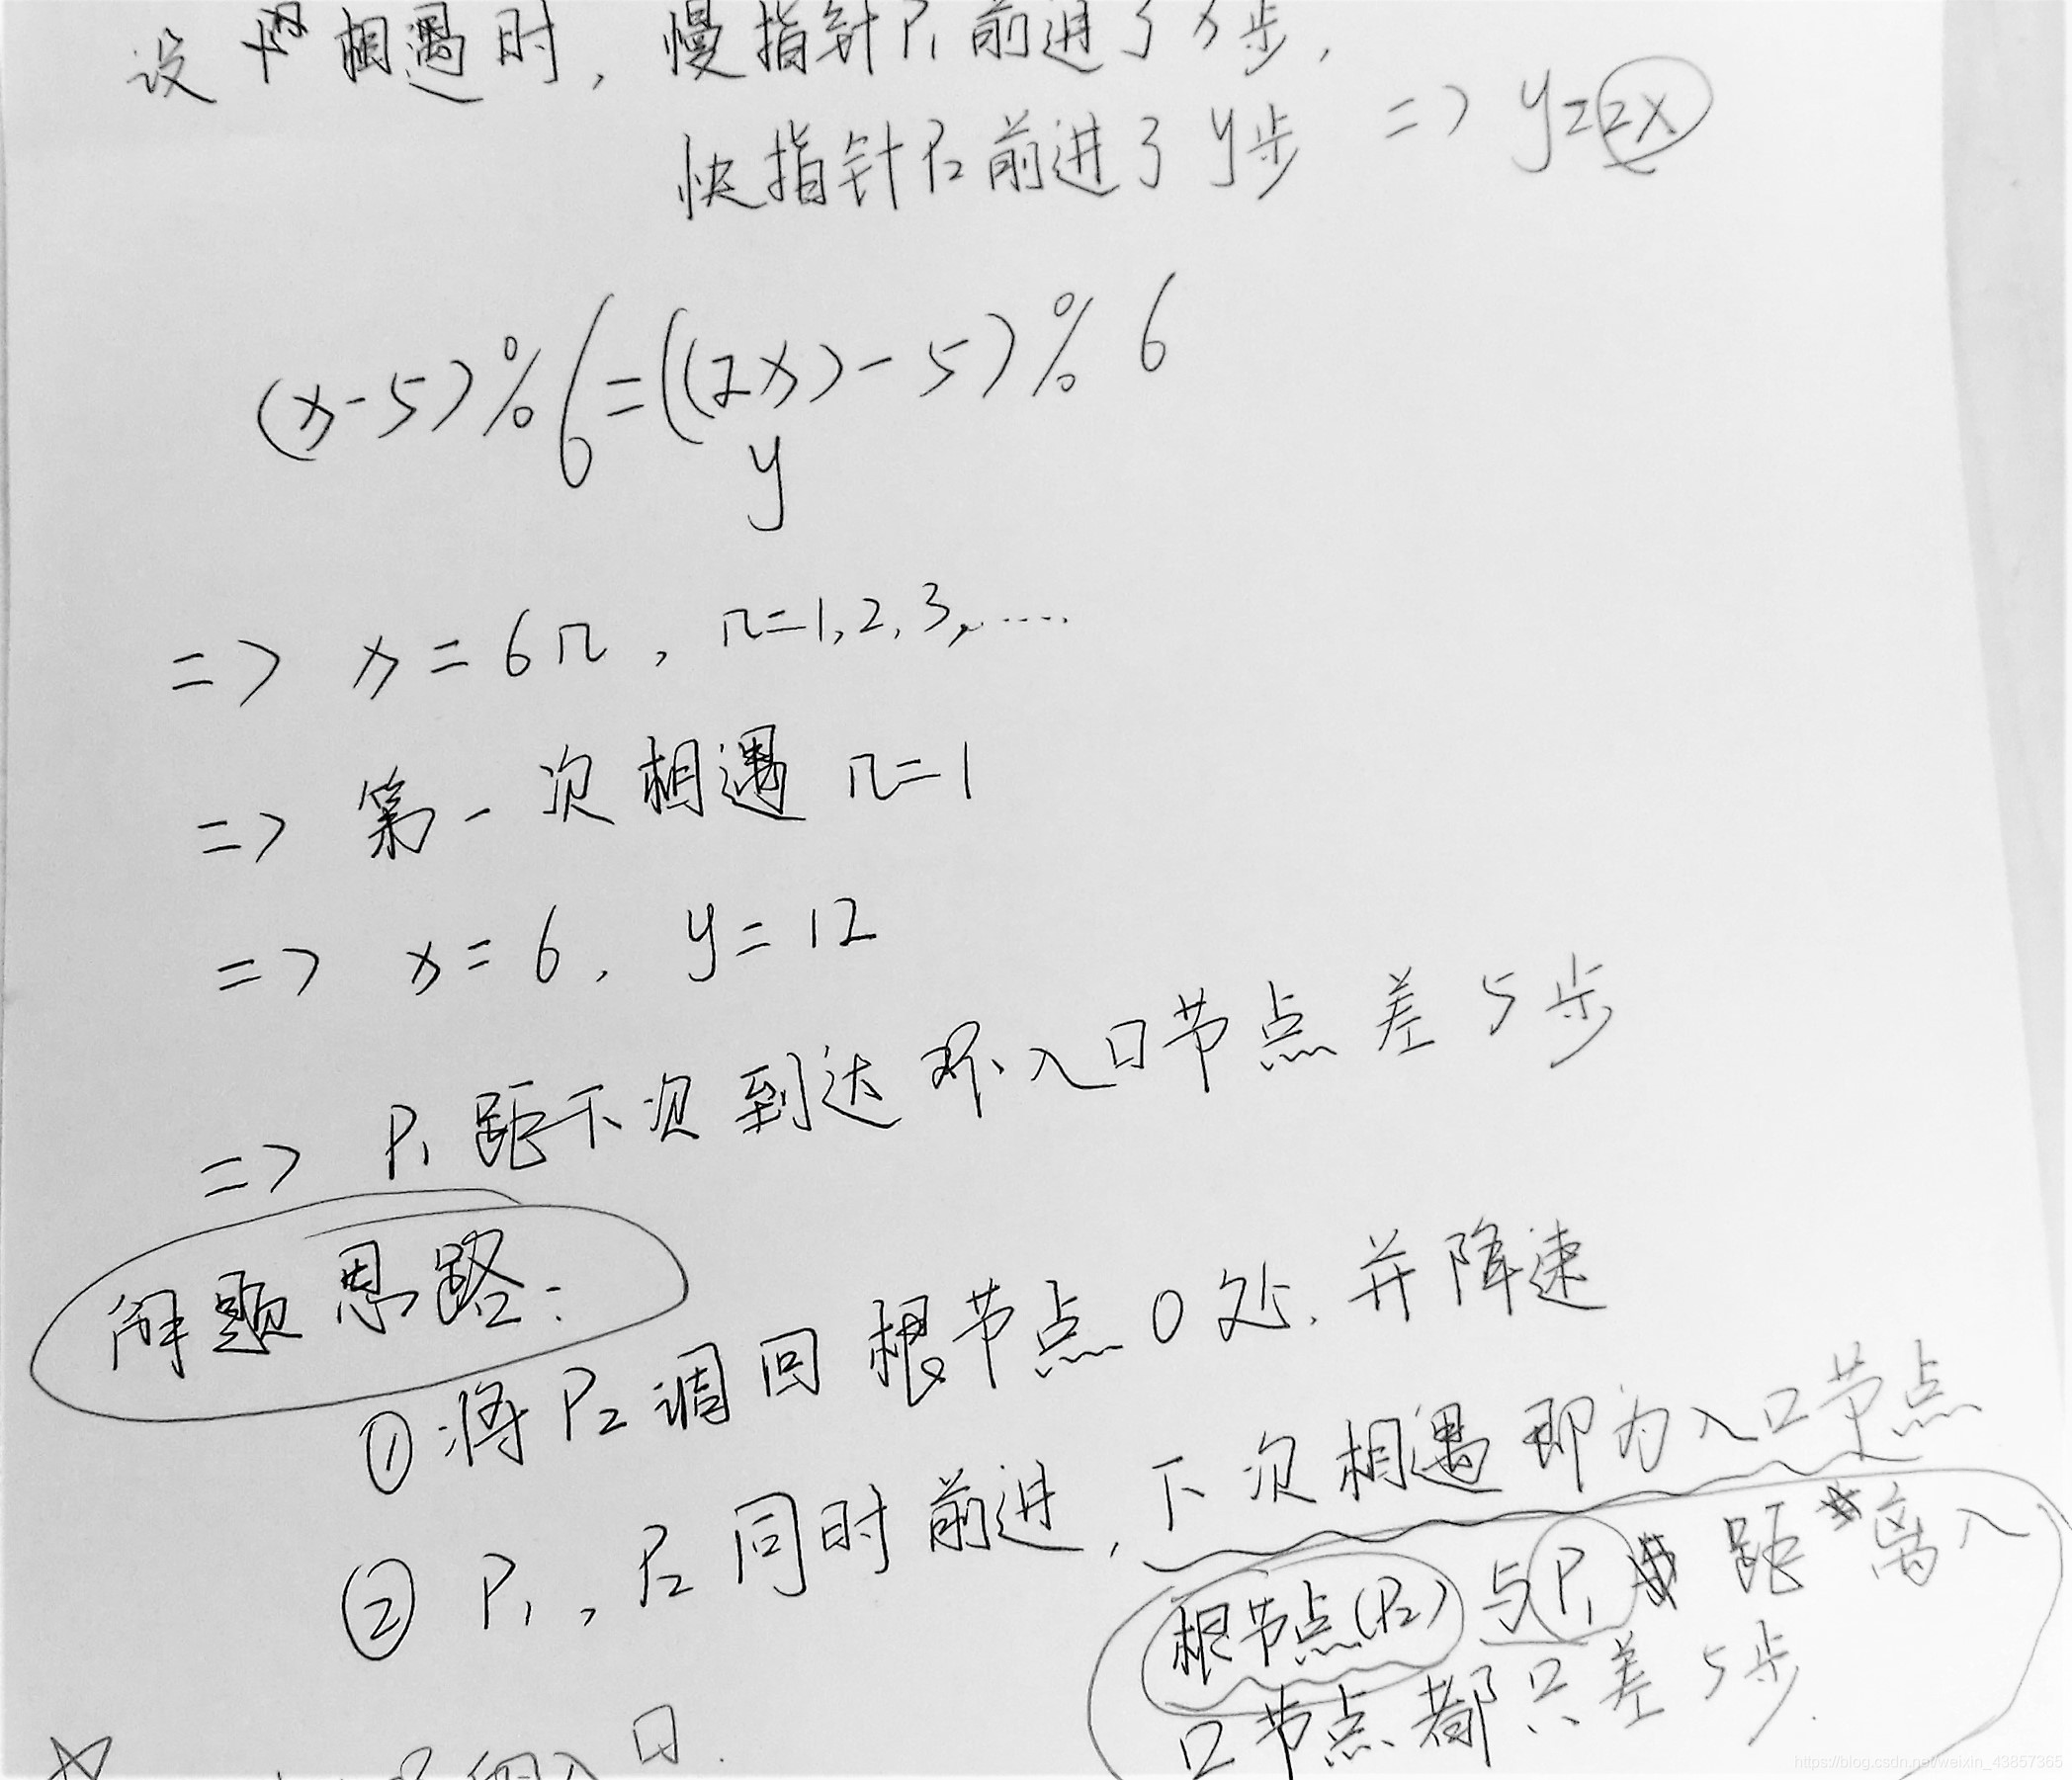 设相遇时，慢指针P₁前进了x步，
快指针P₂前进了y步 => y=2x
(x-5)%6=((2x)-5)%6
y
=> x=6n，n=1,2,3,.....
=> 第一次相遇 n=1
=> x=6，y=12
=> P₁距下次到达环入口节点差5步
解题思路：
①将P₂调回根节点0处，并降速
②P₁，P₂同时前进，下次相遇即为入口节点
根节点(P₂)与P₁距离入
口节点都只差5步.
入口.
https://blog.csdn.net/weixin_43857365